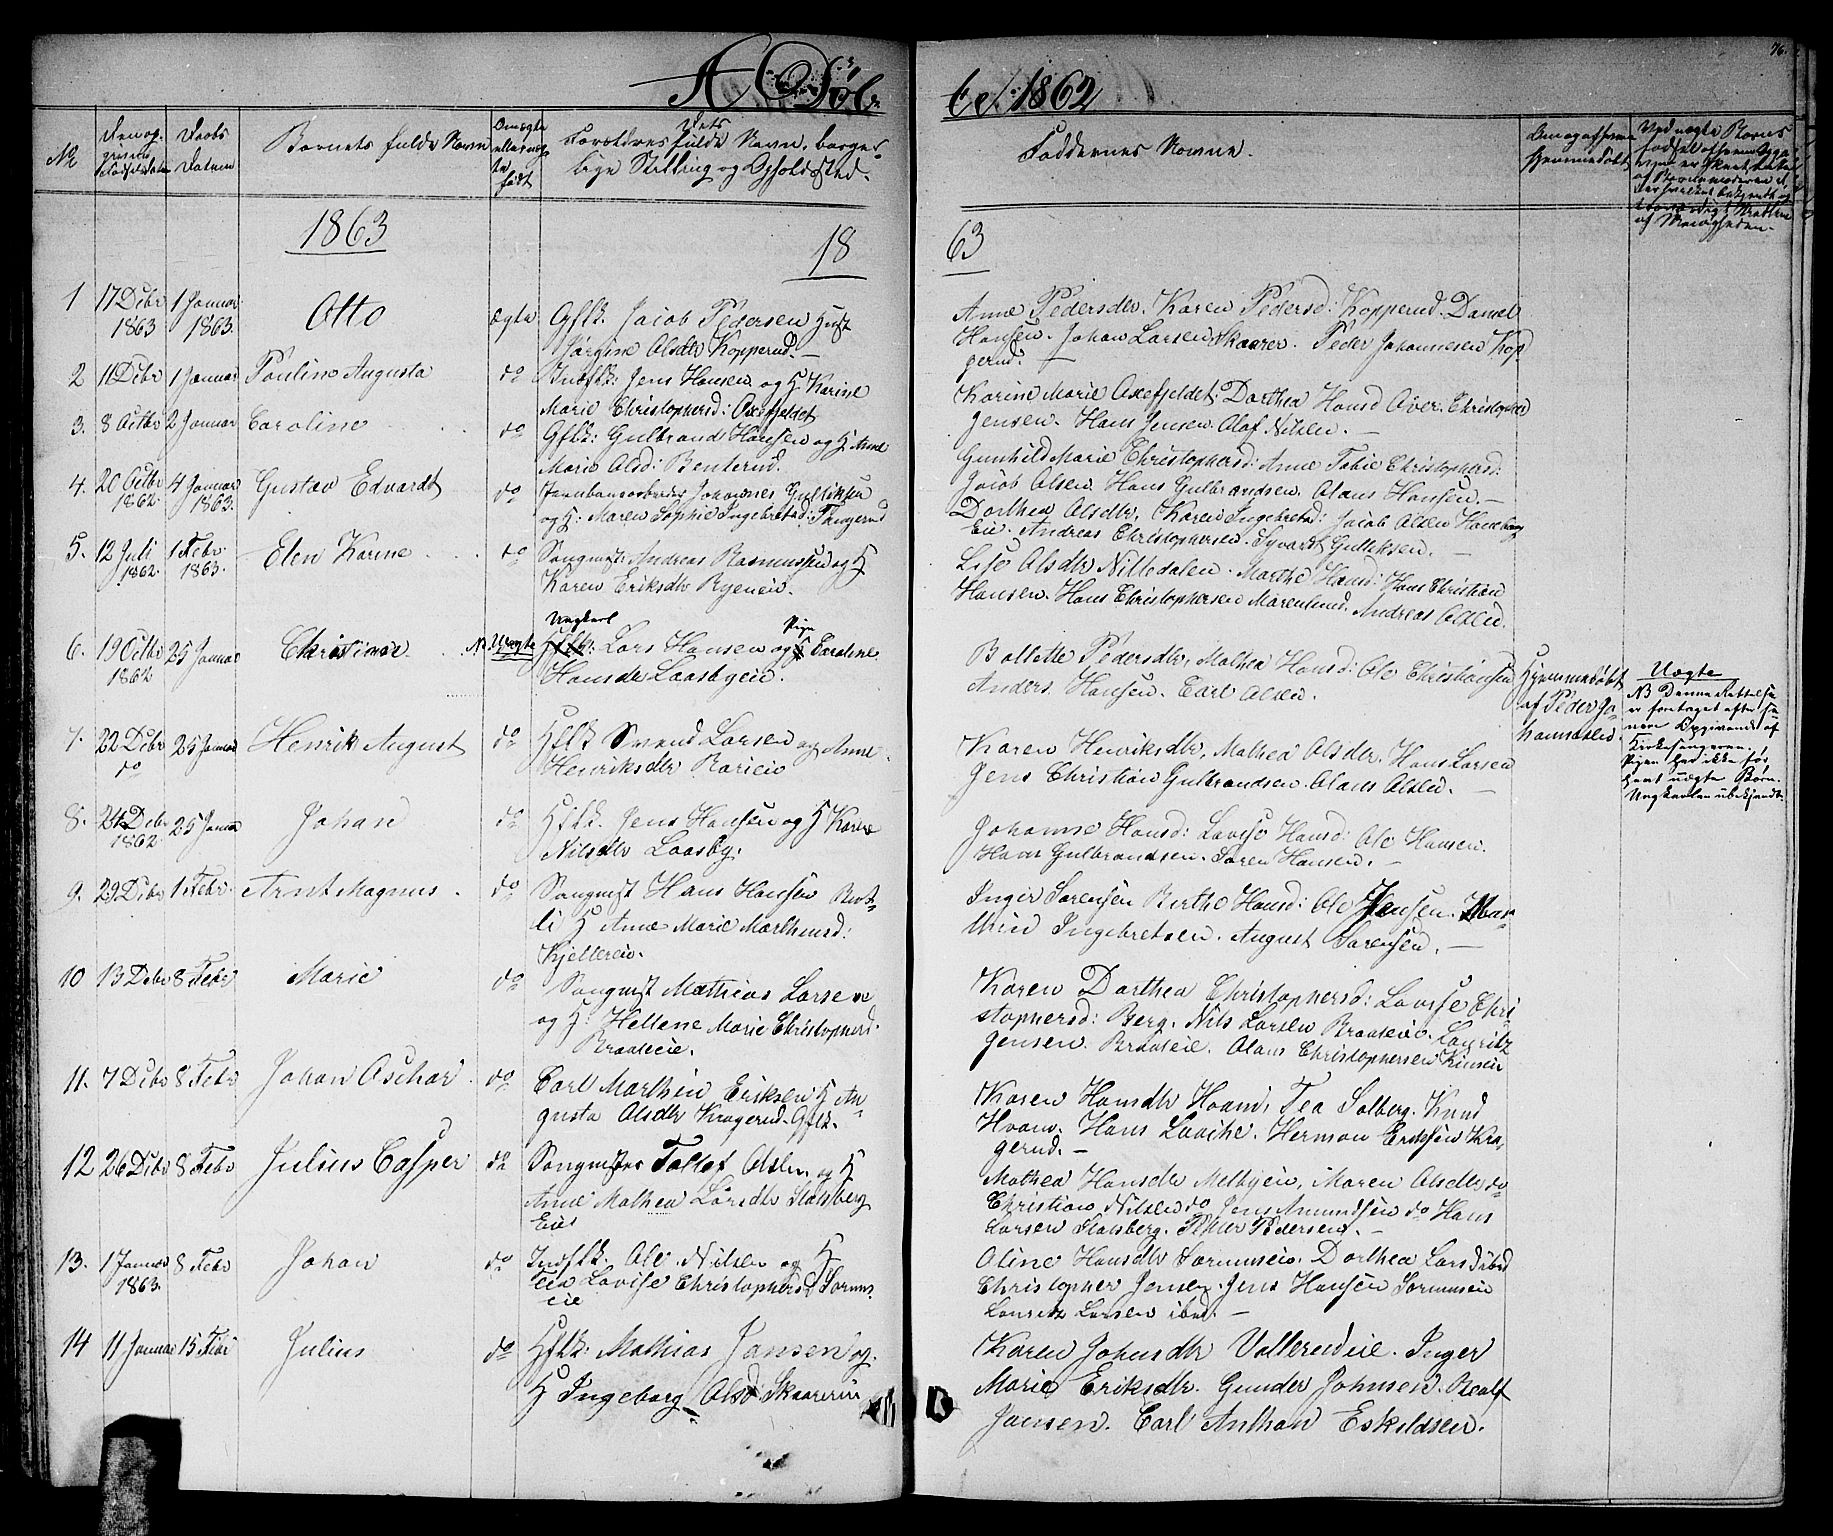 76.
A Døb
te 1862
No
Den op-
givne
Fødselsdatum
Daabs
Datum
Barnets fulde Navn
Om ægte
eller uæg-
te
født
Forældres fulde Navn, borger-
lige Stilling og Opholdssted.
Faddernes Navne.
Om og af hvem
hjemmedøbt
1863
18
63
1 17 Debr 1863 1 Januar 1863. Otto ægte Gflk. Jacob Pedersen Hust
Jørgine Olsdtr Kopperud.
Anne Pedersdtr. Karen Pedersd: Kopperud. Daniel
Hansen. Johan Larsen Skaarer. Peder Johannesen Kop
perud.
2 11 Debr 1 Januar Pauline Augusta do Indflk: Jens Hansen og H Karine
Marie Christophersd: Oxefjeldet
Karine Marie Oxefjeldet. Dorthea Hansd Aver. Christopher
Jensen. Hans Jensen. Olaf Nilsen.
3. 8 Octbr 2 Januar Caroline do Gflk: Gulbrand Hansen og H Anne
Marie Olsd: Benterud.
Gunhild Marie Christophersd: Anne Tobie Christophersd:
Jacob Olsen. Hans Gulbrandsen. Olaus Hansen.
4. 20 Octbr 1862 4 Januar 1863. Gustav Edvardt do Jernbanearbeider Johannes Gulliksen
og H: Maren Sophie Ingebretsd:
Dorthea Olsdtr. Karen Ingebretsd: Jacob Olsen
Eie. Andreas Christophersen. Syvardt Gulliksen.
5. 12 Juli 1862. 1 Febr. 1863. Elen Karine do Sangmst: Andreas Rasmussen og H
Karen Eriksdtr Ryeneie.
Lise Olsdtr Nittedalen. Marthe Hansd: Hans Christian
Hansen. Hans Christophersen Marenlund. Andreas Olsen.
Ungkarl Pige
6. 19 Octbr 1862 25 Januar Christiane NB Uægte Hflk: Lars Hansen og H Caroline
Hansdtr Laasbyeie.
Bollette Pedersdtr, Mathea Hansd: Ole Christiansen
Anders Hansen. Carl Olsen.
Hjemmedøbt
af Peder Jo-
hannesen.
Uægte
NB Denne Rettelse
er foretaget efter se-
nere Opgivende af
Kirkesangeren.
Pigen har ikke før
havt uægte Børn.
Ungkarlen ubekjendt.
7. 22 Debr do 25 Januar Henrik August do Hflk Svend Larsen og Anne
Henriksdtr
Karen Henriksdtr, Mathea Olsdtr. Hans Larsen
Jens Christian Gulbrandsen. Olaus Olsen.
8. 24 Debr 1862. 25 Januar Johan do Hflk. Jens Hansen og H Karen
Nilsdtr Laasby.
Johanne Hansd: Lovise Hansd: Ole Hansen.
Hans Gulbrandsen. Søren Hansen.
9. 29 Debr 1 Febr. Arnt Magnus do Sangmst Hans Hansen
li H Anne Marie Marthinsd:
Kjellereie.
Inger Sørensen Berthe Hansd: Ole Jensen. Mar-
thin Ingebretsen. August Sørensen.
10 13 Debr 8 Febr Marie do Sangmst Mathias Larsen
og H: Hellene Marie Christophersd.
Braateeie.
Karen Dorthea Christophersd: Lovise Chri-
stophersd: Berg. Nils Larsen Braateeie. Lauritz
Jensen. Braateie. Olaus Christophersen
11. 7 Debr 8 Febr Johan Oschar do Carl Marthin Eriksen H Au-
gusta Olsdtr Kragerud. Gflk.
Karen Hansdtr Hvam, Tea Solberg. Knud
Hvam. Hans Laache. Herman Eriksen Kra-
gerud.
12 26 Debr 8 Febr Julius Casper do Sangmster Tollof Olsen og H
Anne Mathea Larsdtr Stalsberg
Eie
Mathea Hansdtr Melbyeie, Maren Olsdtr do
Christian Nilsen do Jens Amundsen do Hans
Larsen Stalsberg. Peder Pedersen.
13. 1 Januar 1863. 8 Febr Johan do Indflk. Ole Nilsen og H
Tea Lovise Christophersd Sørum-
eie
Oline Hansdtr Sørumseie. Dorthea Larsd ibid
Christopher Jensen. Jens Hansen Sørumseie
Lauritz Larsen ibid.
14 11 Januar 15 Febr Julius do Hflk: Mathias Jansen og
H Ingeborg Olsd Skaarereie
Karen Johnsdtr Vallerudeie. Inger
Marie Eriksdtr. Gunder Johnsen. Roalf
Jansen. Carl Anthon Eskildsen.